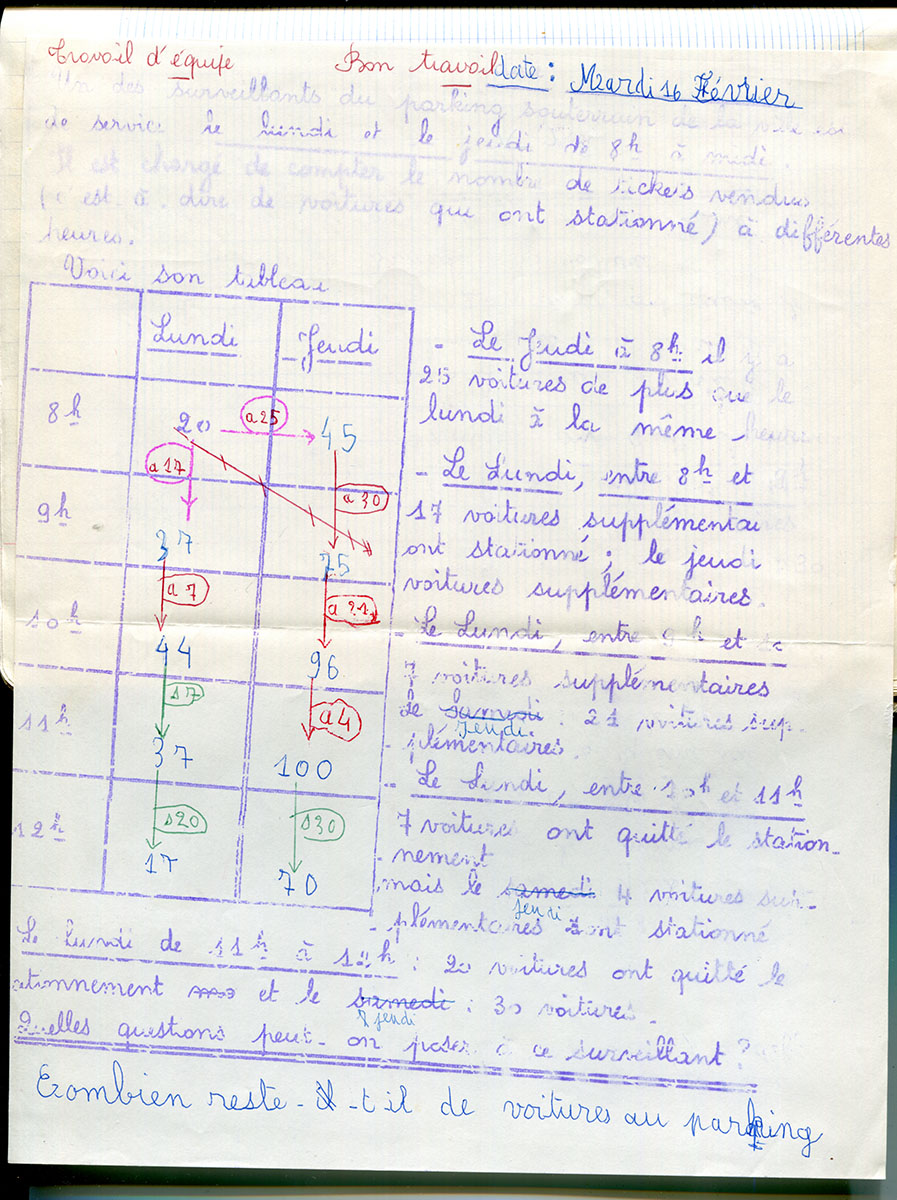 Travail d'équipe Bon travail date : Mardi 16 Février
Un des surveillants du parking souterrain de la ville est
de service le lundi et le jeudi de 8h à midi.
Il est chargé de compter le nombre de tickets vendus
(c'est à dire de voitures qui ont stationné) à différentes
heures.
Voici son tableau
Lundi Jeudi
8h 20 a 25 45
a 17 a 30
9h 37 75
a 7 a 21
10h 44 96
s 7 a 4
11h 37 100
s 20 s 30
12h 17 70
- Le Jeudi à 8h il y a
25 voitures de plus que le
lundi à la même heure
- Le Lundi, entre 8h et
17 voitures supplémentaires
ont stationné ; le jeudi
voitures supplémentaires.
- Le Lundi, entre 9h et 10
7 voitures supplémentaires
Le samedi jeudi : 21 voitures sup-
plémentaires.
- Le Lundi, entre 10h et 11h
7 voitures ont quitté le station-
nement
mais le samedi jeudi 4 voitures sup-
plémentaires ont stationné
Le Lundi de 11h à 12h : 20 voitures ont quitté le
stationnement et le samedi jeudi : 30 voitures.
Quelles questions peut-on poser à ce surveillant ?
Combien reste-t il de voitures au parking